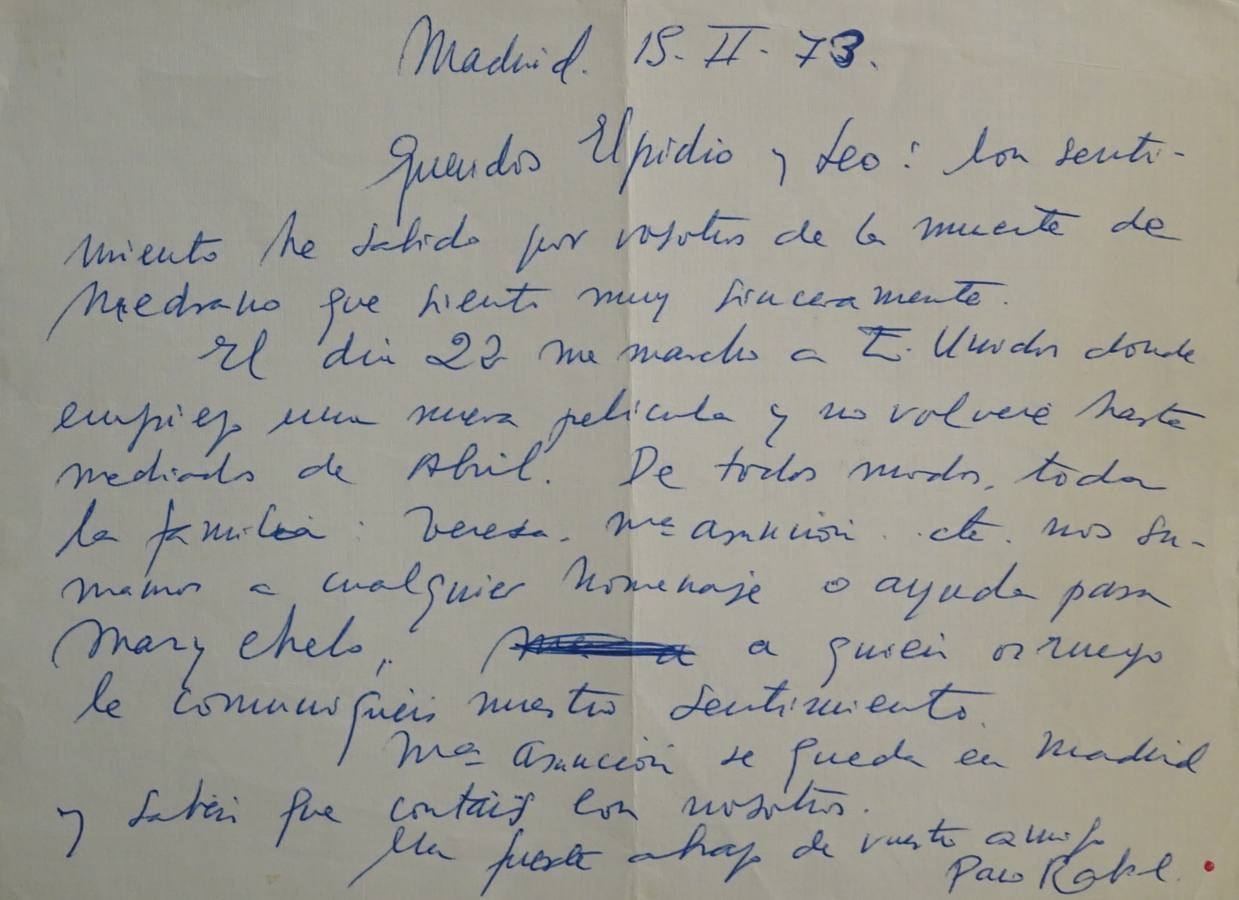 Madrid. 15-II-73.
Queridos Elpidio y Leo: con senti-
miento he sabido por vosotros de la muerte de
Medrano que siento muy sinceramente.
El dia 22 me marcho a E. Unidos donde
empiezo una nueva película y no volveré hasta
mediados de Abril. De todos modos, toda
la familia: Teresa, Mª Asunción. etc. nos su-
mamos a cualquier homenaje o ayuda para
Mary Chelo, a quien os ruego
le comuniquéis nuestro sentimiento.
Mª Asunción se queda en Madrid
y sabéis que contáis con nosotros.
Un fuerte abrazo de vuestro amigo
Paco Rabal.